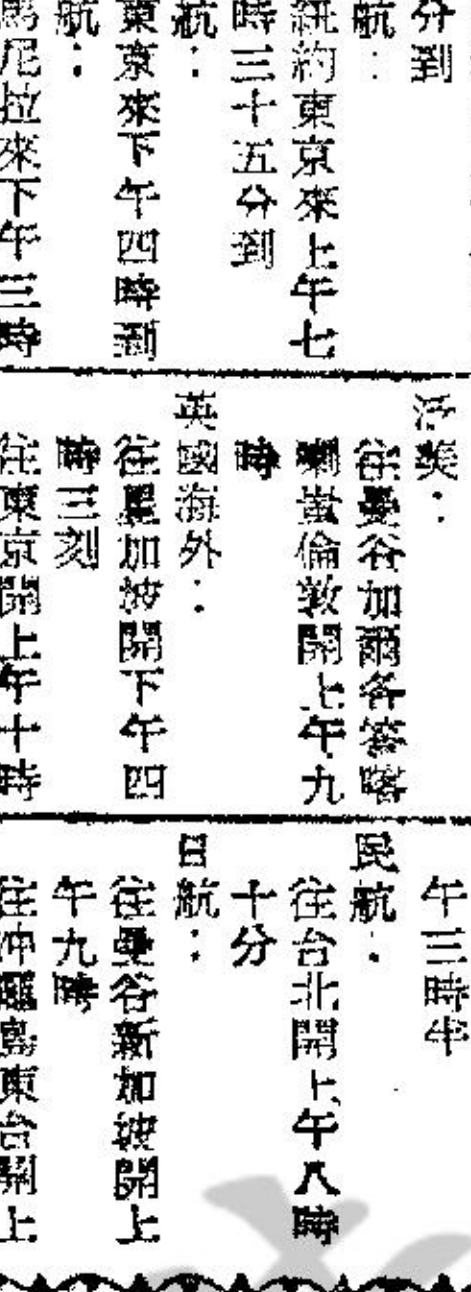 分到
航：
紐約東京來上午七
時三十五分到
航：
東京來下午四時到
航：
馬尼拉來下午三時
泛美：
往曼谷加爾各答喀
喇蚩倫敦開上午九
時
英國海外：
往星加坡開下午四
時三刻
往東京開上午十時
午三時半
民航：
往台北開上午八時
十分
日航：
往曼谷新加坡開上
午九時
往冲繩島東台開上